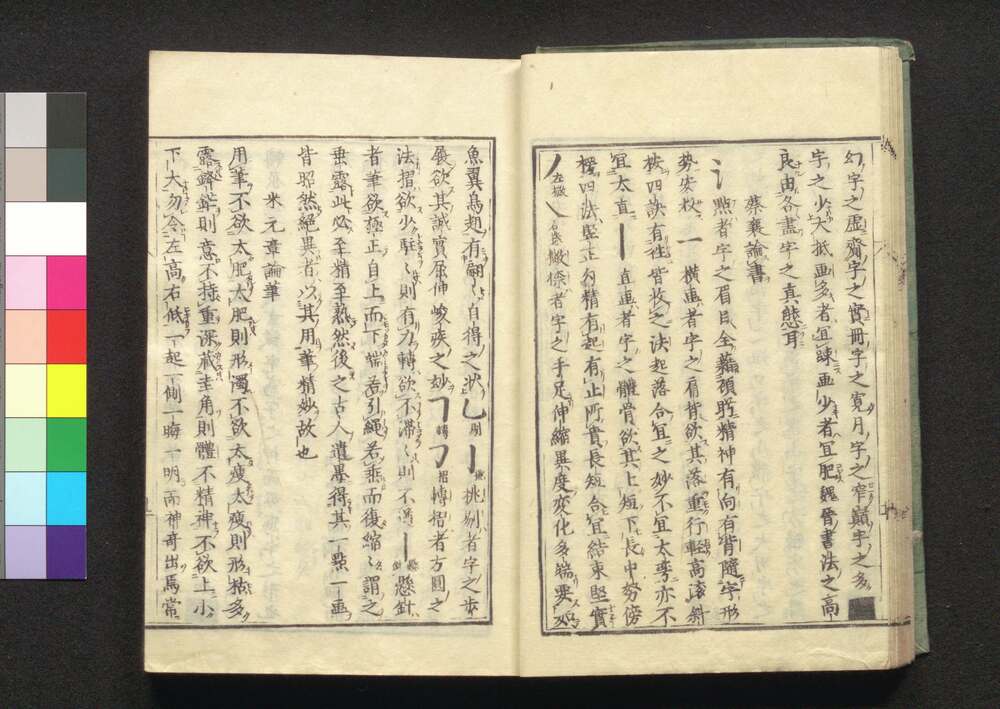 幻字之虚齋字之實冊字之寛月字之窄巓字之多
字之少大抵画多者宜疎画少者宜肥魏晋書法之高
良由各盡字之真態耳
蔡襄論書
丶點者字之眉目全藉顧盻精神有向有背隨字形
勢安杈一横画者字之肩背欲其落重行輕高滚斜
枚四訣有徃皆收之法起落合宜之妙不宜太長亦不
宜太直丨直画者字之體骨欲其上短下長中勢傍
榰四法竪正匀精有起有止所貴長短合宜結束堅實
丿左撇㇏右逺撇捺者字之手足伸縮異度変化多端要如
魚翼鳥趐有翩々自得之状乚剔亅挑挑剔者字之歩
履欲其誠實屈伸峻疾之妙㇕轉㇆摺轉摺者方圓之
法摺欲少駐々則有力轉欲不滞々則不遒丨懸針懸針
者筆欲極正自上而下端若引繩若垂而復縮々謂之
垂露此必至精至熟然後之古人遺墨得其一點一画
皆昭然絶異者以其用筆精妙故也
米元章論筆
用筆不欲太肥太肥則形濁不欲太瘦太瘦則形枯多
露鋒芒則意不持重深藏圭角則體不精神不欲上小
下大勿令左高右低一起一側一晦一明而神奇出焉常